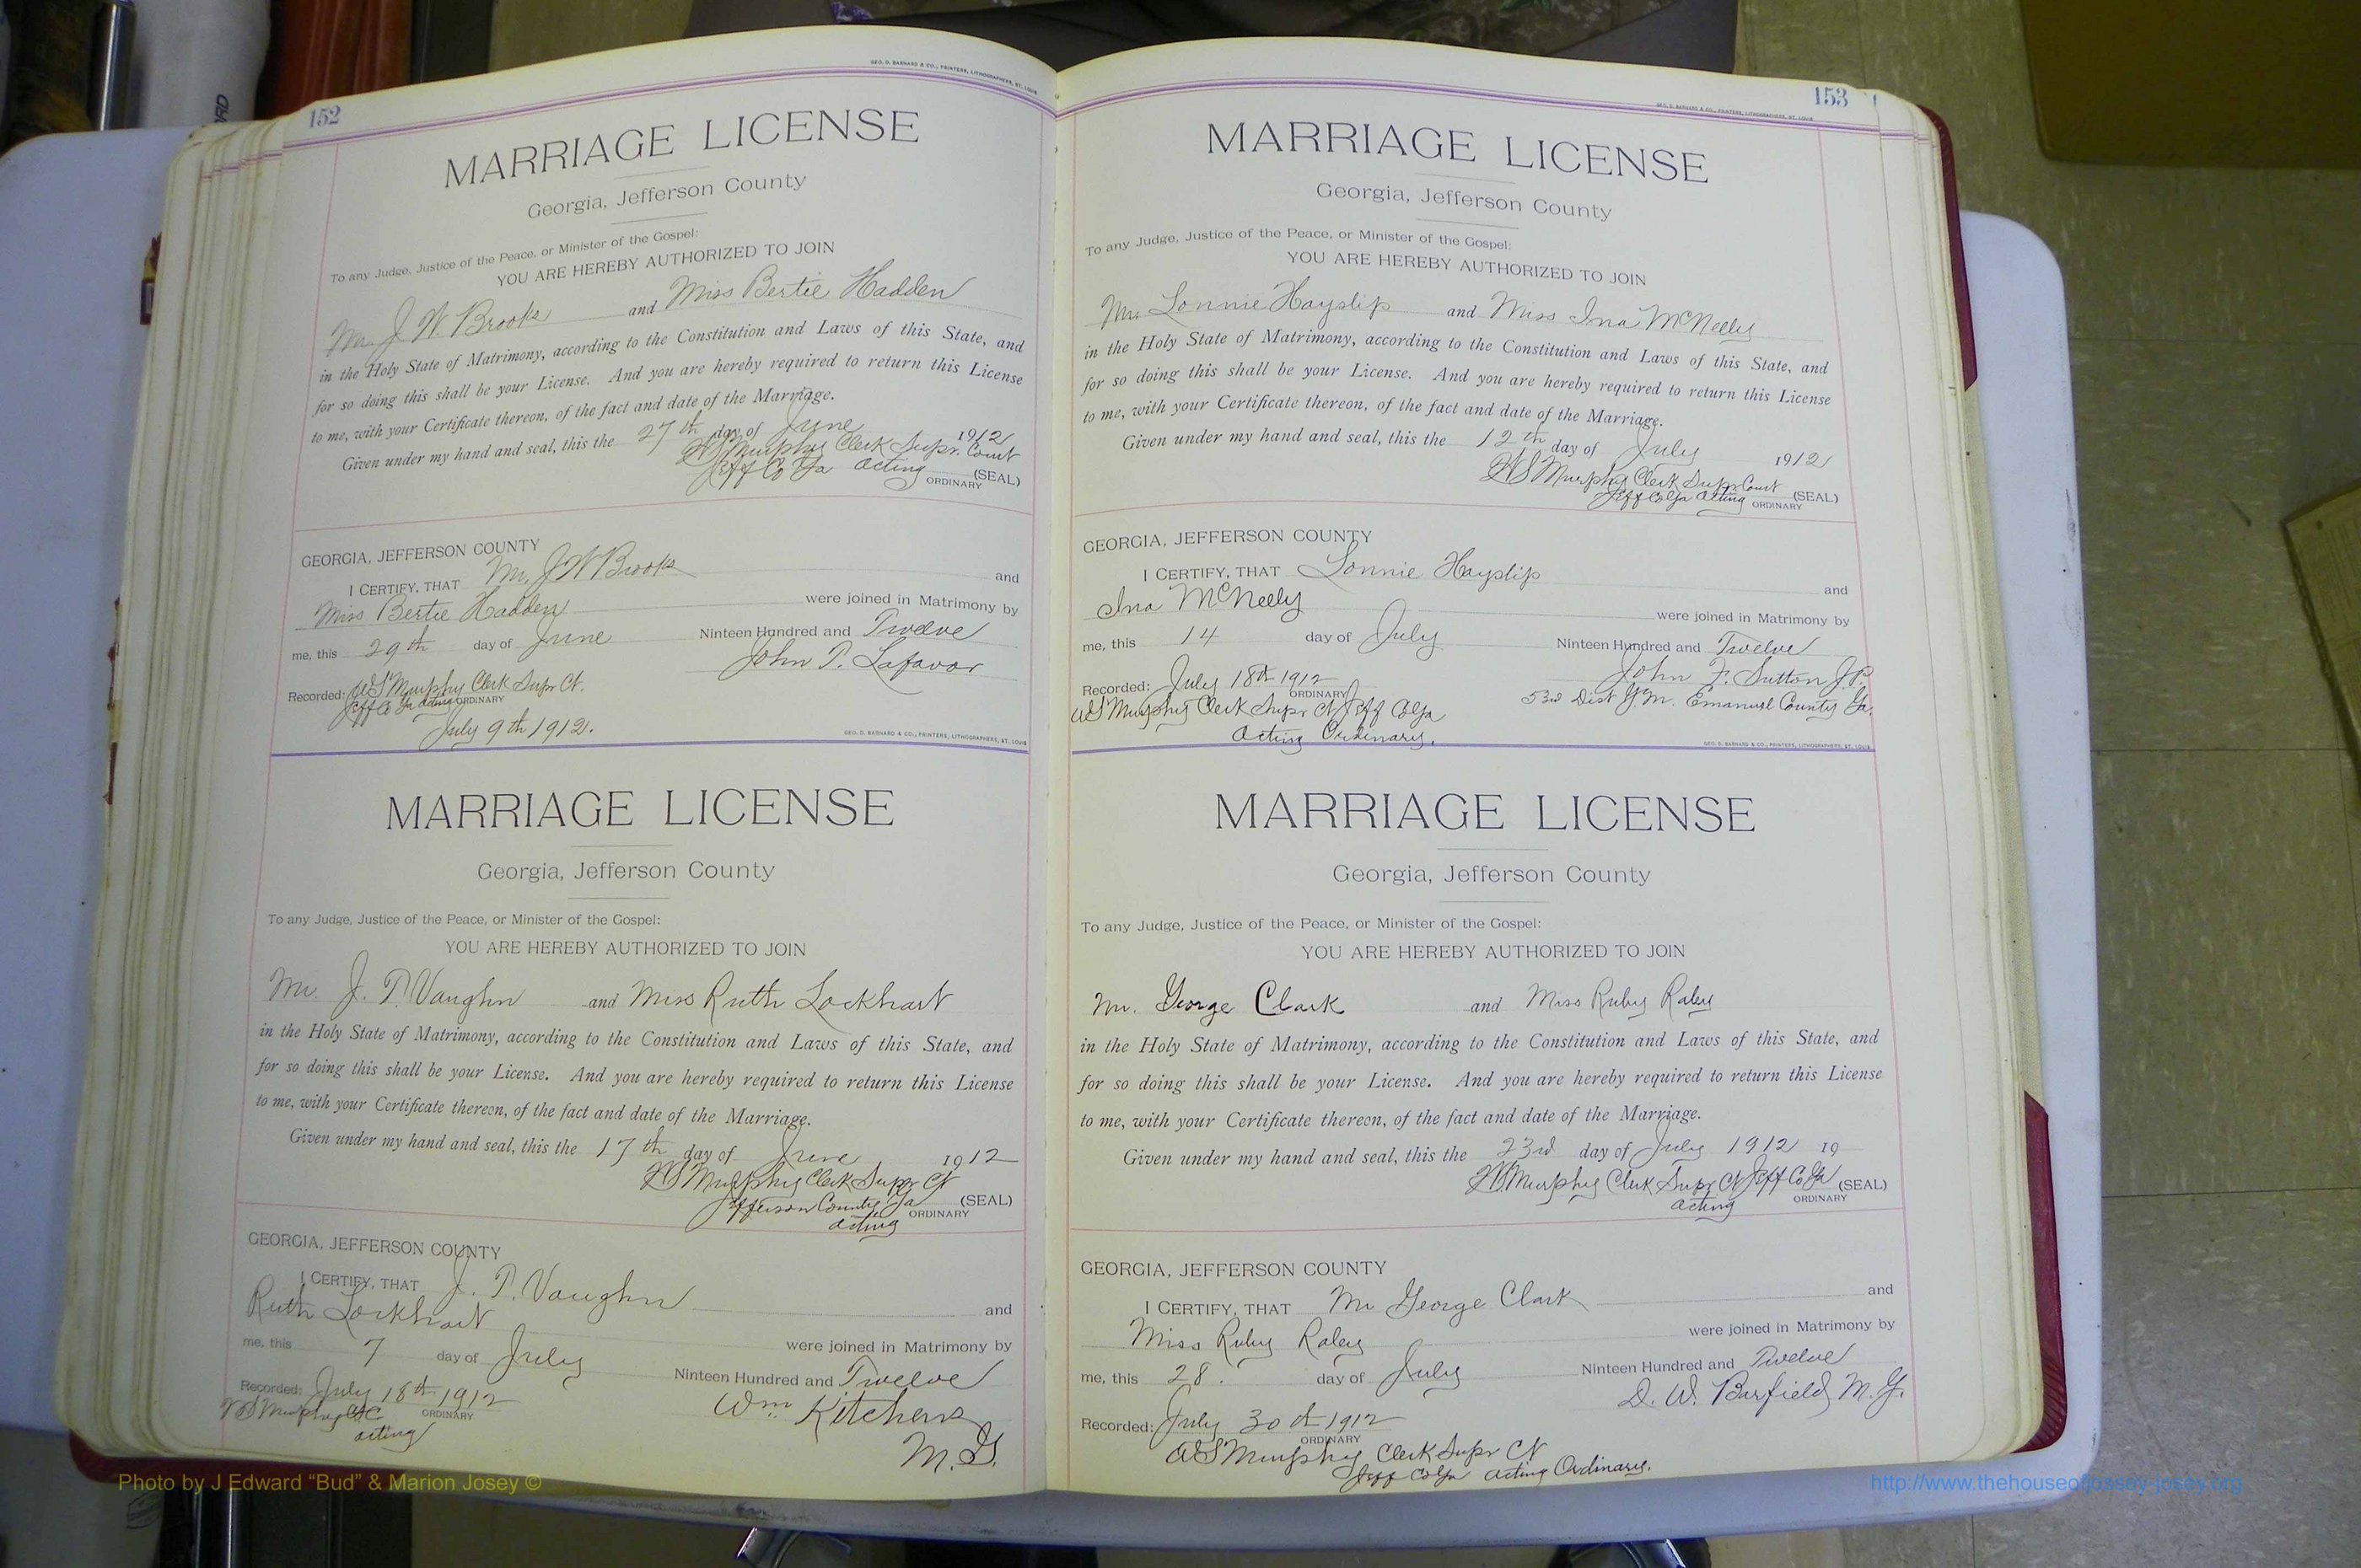 152
GEO. D. BARNARD & CO., PRINTERS, LITHOGRAPHERS, ST. LOUIS
MARRIAGE LICENSE
Georgia, Jefferson County
To any Judge, Justice of the Peace, or Minister of the Gospel:
YOU ARE HEREBY AUTHORIZED TO JOIN
Mr. J W Brooks and Miss Bertie Hadden
in the Holy State of Matrimony, according to the Constitution and Laws of this State, and
for so doing this shall be your License. And you are hereby required to return this License
to me, with your Certificate thereon, of the fact and date of the Marriage.
Given under my hand and seal, this the 27th day of June 1912
Murphy Clerk Supr. Court
Jeff Co Ga acting ORDINARY (SEAL)
GEORGIA, JEFFERSON COUNTY
I CERTIFY, THAT Mr. J W Brooks and
Miss Bertie Hadden were joined in Matrimony by
me, this 29th day of June Ninteen Hundred and Twelve
John P. Lafavor
Recorded: Murphy Clerk Supr Ct.
Jeff Co Ga acting ORDINARY
July 9th 1912.
GEO. D. BARNARD & CO., PRINTERS, LITHOGRAPHERS, ST. LOUIS
MARRIAGE LICENSE
Georgia, Jefferson County
To any Judge, Justice of the Peace, or Minister of the Gospel:
YOU ARE HEREBY AUTHORIZED TO JOIN
Mr. J. P. Vaughn and Miss Ruth Lockhart
in the Holy State of Matrimony, according to the Constitution and Laws of this State, and
for so doing this shall be your License. And you are hereby required to return this License
to me, with your Certificate thereon, of the fact and date of the Marriage.
Given under my hand and seal, this the 17th day of June 1912
Murphy Clerk Supr Ct
Jefferson County Ga ORDINARY (SEAL)
acting
GEORGIA, JEFFERSON COUNTY
I CERTIFY, THAT J. P. Vaughn and
Ruth Lockhart were joined in Matrimony by
me, this 7 day of July Ninteen Hundred and Twelve
Wm Kitchens
M. G.
Recorded: July 18th 1912
Murphy ORDINARY
acting
153
GEO. D. BARNARD & CO., PRINTERS, LITHOGRAPHERS, ST. LOUIS
MARRIAGE LICENSE
Georgia, Jefferson County
To any Judge, Justice of the Peace, or Minister of the Gospel:
YOU ARE HEREBY AUTHORIZED TO JOIN
Mr Lonnie Hayslip and Miss Ina McNeely
in the Holy State of Matrimony, according to the Constitution and Laws of this State, and
for so doing this shall be your License. And you are hereby required to return this License
to me, with your Certificate thereon, of the fact and date of the Marriage.
Given under my hand and seal, this the 12th day of July 1912
Murphy Clerk Supr Court
Jeff Co Ga acting ORDINARY (SEAL)
GEORGIA, JEFFERSON COUNTY
I CERTIFY, THAT Lonnie Hayslip and
Ina McNeely were joined in Matrimony by
me, this 14 day of July Ninteen Hundred and Twelve
John F. Sutton J.P.
53rd Dist G.M. Emanuel County Ga.
Recorded: July 18th 1912 ORDINARY
Murphy Clerk Supr Ct Jeff Co Ga
Acting Ordinary.
GEO. D. BARNARD & CO., PRINTERS, LITHOGRAPHERS, ST. LOUIS
MARRIAGE LICENSE
Georgia, Jefferson County
To any Judge, Justice of the Peace, or Minister of the Gospel:
YOU ARE HEREBY AUTHORIZED TO JOIN
Mr. George Clark and Miss Ruby Raley
in the Holy State of Matrimony, according to the Constitution and Laws of this State, and
for so doing this shall be your License. And you are hereby required to return this License
to me, with your Certificate thereon, of the fact and date of the Marriage.
Given under my hand and seal, this the 23rd day of July 1912 19
Murphy Clerk Supr Ct Jeff Co Ga (SEAL)
acting ORDINARY
GEORGIA, JEFFERSON COUNTY
I CERTIFY, THAT Mr George Clark and
Miss Ruby Raley were joined in Matrimony by
me, this 28. day of July Ninteen Hundred and Twelve
D. W. Barfield M. G.
Recorded: July 30th 1912
ORDINARY
Murphy Clerk Supr Ct
Jeff Co Ga acting Ordinary.
Photo by J Edward “Bud” & Marion Josey ©
http://www.thehouseofjossey-josey.org